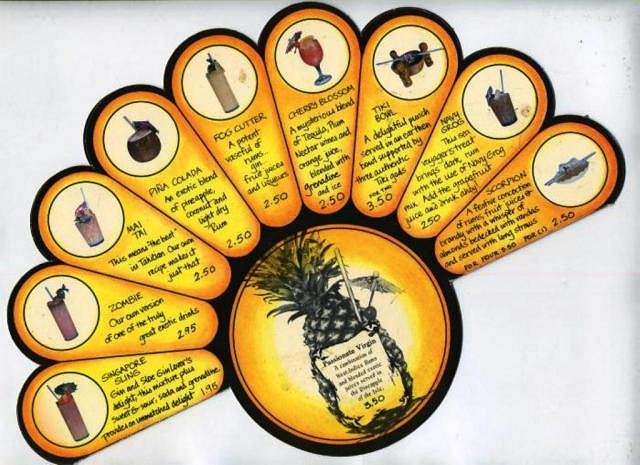 SINGAPORE
SLING
Gin and Sloe Gin lover's
delight, this mixture plus
sweet & sour, soda and grenadine,
provides an unmatched delight 1.95
ZOMBIE
Our own version
of one of the truly
great exotic drinks
2.95
MAI
TAI
This means "the best"
in Tahitian. Our own
recipe makes it
just that.
2.50
PIÑA COLADA
An exotic blend
of pineapple,
coconut and
light dry
rum
2.50
FOG CUTTER
A potent
vaseful of
rums,
gin,
fruit juices
and liqueurs
2.50
CHERRY BLOSSOM
A mysterious blend
of Tequila, Plum
Nectar wine and
orange juice,
blended with
grenadine
and ice
2.50
TIKI
BOWL
A delightful punch
served in an earthen
bowl supported by
three authentic
Tiki gods
FOR TWO
3.50
NAVY
GROG
This sea
voyagers treat
brings dark rum
with the use of Navy Grog
mix. Add the grapefruit
juice and drink ahoy!
2.50
SCORPION
A festive concoction
of rums, fruit juices and
brandy with a whisper of
almonds bedecked with
and served with long straws
FOR FOUR FOR (1) 2.50
Passionate Virgin
A combination of
West Indies Rums
and blended exotic
juices served in
the Pineapple
of the Isle.
3.50